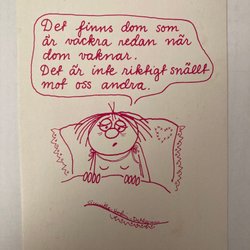 Det finns dom som
är vackra redan när
dom vaknar.
Det är inte riktigt snällt
mot oss andra.